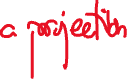 a projection